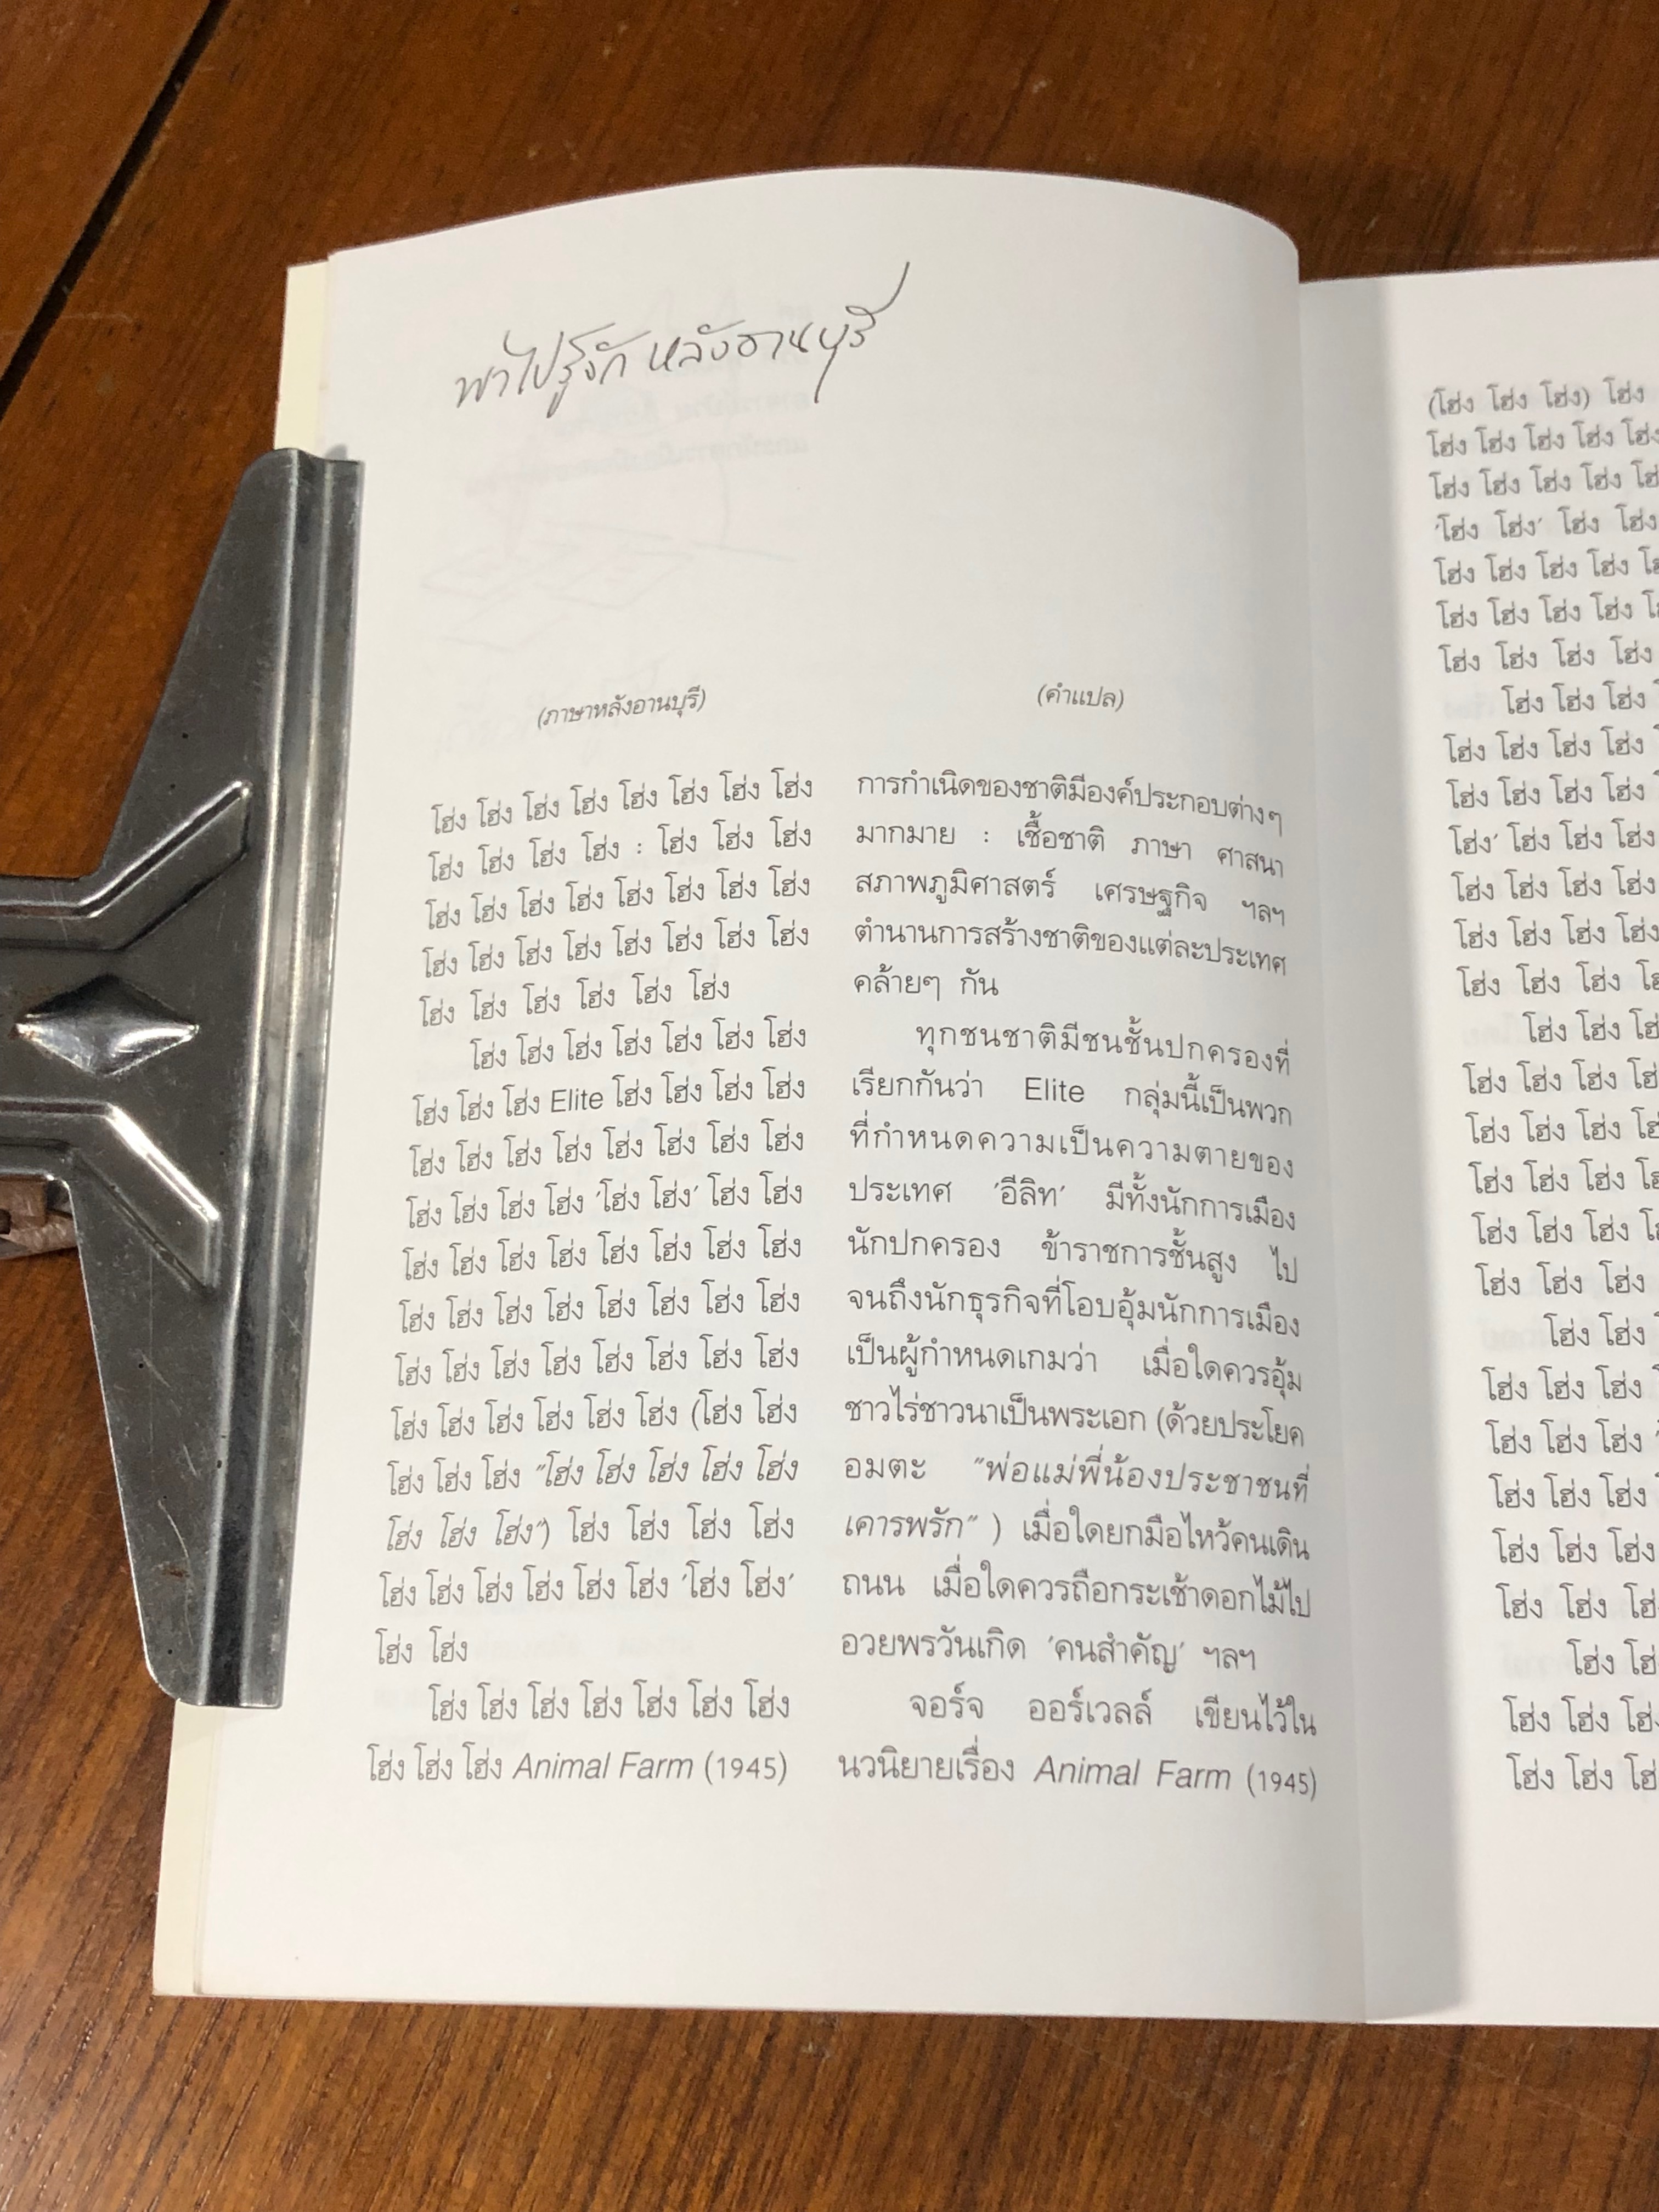 พาไปรู้จัก หลังอานบุรี
(ภาษาหลังอานบุรี)
โฮ่ง โฮ่ง โฮ่ง โฮ่ง โฮ่ง โฮ่ง โฮ่ง โฮ่ง
โฮ่ง โฮ่ง โฮ่ง โฮ่ง : โฮ่ง โฮ่ง โฮ่ง
โฮ่ง โฮ่ง โฮ่ง โฮ่ง โฮ่ง โฮ่ง โฮ่ง โฮ่ง
โฮ่ง โฮ่ง โฮ่ง โฮ่ง โฮ่ง โฮ่ง โฮ่ง โฮ่ง
โฮ่ง โฮ่ง โฮ่ง โฮ่ง โฮ่ง โฮ่ง
โฮ่ง โฮ่ง โฮ่ง โฮ่ง โฮ่ง โฮ่ง โฮ่ง
โฮ่ง โฮ่ง โฮ่ง Elite โฮ่ง โฮ่ง โฮ่ง โฮ่ง
โฮ่ง โฮ่ง โฮ่ง โฮ่ง โฮ่ง โฮ่ง โฮ่ง โฮ่ง
โฮ่ง โฮ่ง โฮ่ง โฮ่ง ‘โฮ่ง โฮ่ง’ โฮ่ง โฮ่ง
โฮ่ง โฮ่ง โฮ่ง โฮ่ง โฮ่ง โฮ่ง โฮ่ง โฮ่ง
โฮ่ง โฮ่ง โฮ่ง โฮ่ง โฮ่ง โฮ่ง โฮ่ง โฮ่ง
โฮ่ง โฮ่ง โฮ่ง โฮ่ง โฮ่ง โฮ่ง โฮ่ง โฮ่ง
โฮ่ง โฮ่ง โฮ่ง โฮ่ง โฮ่ง โฮ่ง (โฮ่ง โฮ่ง
โฮ่ง โฮ่ง โฮ่ง “โฮ่ง โฮ่ง โฮ่ง โฮ่ง โฮ่ง
โฮ่ง โฮ่ง โฮ่ง”) โฮ่ง โฮ่ง โฮ่ง โฮ่ง
โฮ่ง โฮ่ง โฮ่ง โฮ่ง โฮ่ง โฮ่ง ‘โฮ่ง โฮ่ง’
โฮ่ง โฮ่ง
โฮ่ง โฮ่ง โฮ่ง โฮ่ง โฮ่ง โฮ่ง โฮ่ง
โฮ่ง โฮ่ง โฮ่ง Animal Farm (1945)
(คำแปล)
การกำเนิดของชาติมีองค์ประกอบต่างๆ
มากมาย : เชื้อชาติ ภาษา ศาสนา
สภาพภูมิศาสตร์ เศรษฐกิจ ฯลฯ
ตำนานการสร้างชาติของแต่ละประเทศ
คล้ายๆ กัน
ทุกชนชาติมีชนชั้นปกครองที่
เรียกกันว่า Elite กลุ่มนี้เป็นพวก
ที่กำหนดความเป็นความตายของ
ประเทศ ‘อีลิท’ มีทั้งนักการเมือง
นักปกครอง ข้าราชการชั้นสูง ไป
จนถึงนักธุรกิจที่โอบอุ้มนักการเมือง
เป็นผู้กำหนดเกมว่า เมื่อใดควรอุ้ม
ชาวไร่ชาวนาเป็นพระเอก (ด้วยประโยค
อมตะ “พ่อแม่พี่น้องประชาชนที่
เคารพรัก”) เมื่อใดยกมือไหว้คนเดิน
ถนน เมื่อใดควรถือกระเช้าดอกไม้ไป
อวยพรวันเกิด ‘คนสำคัญ’ ฯลฯ
จอร์จ ออร์เวลล์ เขียนไว้ใน
นวนิยายเรื่อง Animal Farm (1945)
(โฮ่ง โฮ่ง โฮ่ง) โฮ่ง
โฮ่ง โฮ่ง โฮ่ง โฮ่ง โฮ่ง
โฮ่ง โฮ่ง โฮ่ง โฮ่ง
‘โฮ่ง โฮ่ง’ โฮ่ง โฮ่ง
โฮ่ง โฮ่ง โฮ่ง โฮ่ง
โฮ่ง โฮ่ง โฮ่ง โฮ่ง
โฮ่ง โฮ่ง โฮ่ง โฮ่ง
โฮ่ง โฮ่ง โฮ่ง
โฮ่ง โฮ่ง โฮ่ง โฮ่ง
โฮ่ง โฮ่ง โฮ่ง โฮ่ง
โฮ่ง’ โฮ่ง โฮ่ง โฮ่ง
โฮ่ง โฮ่ง โฮ่ง โฮ่ง
โฮ่ง โฮ่ง โฮ่ง โฮ่ง
โฮ่ง โฮ่ง โฮ่ง
โฮ่ง โฮ่ง
โฮ่ง โฮ่ง โฮ่ง
โฮ่ง โฮ่ง โฮ่ง
โฮ่ง โฮ่ง โฮ่ง
โฮ่ง โฮ่ง โฮ่ง
โฮ่ง โฮ่ง โฮ่ง
โฮ่ง โฮ่ง
โฮ่ง โฮ่ง โฮ่ง
โฮ่ง โฮ่ง โฮ่ง
โฮ่ง โฮ่ง โฮ่ง
โฮ่ง โฮ่ง โฮ่ง
โฮ่ง โฮ่ง
โฮ่ง
โฮ่ง โฮ่ง
โฮ่ง โฮ่ง